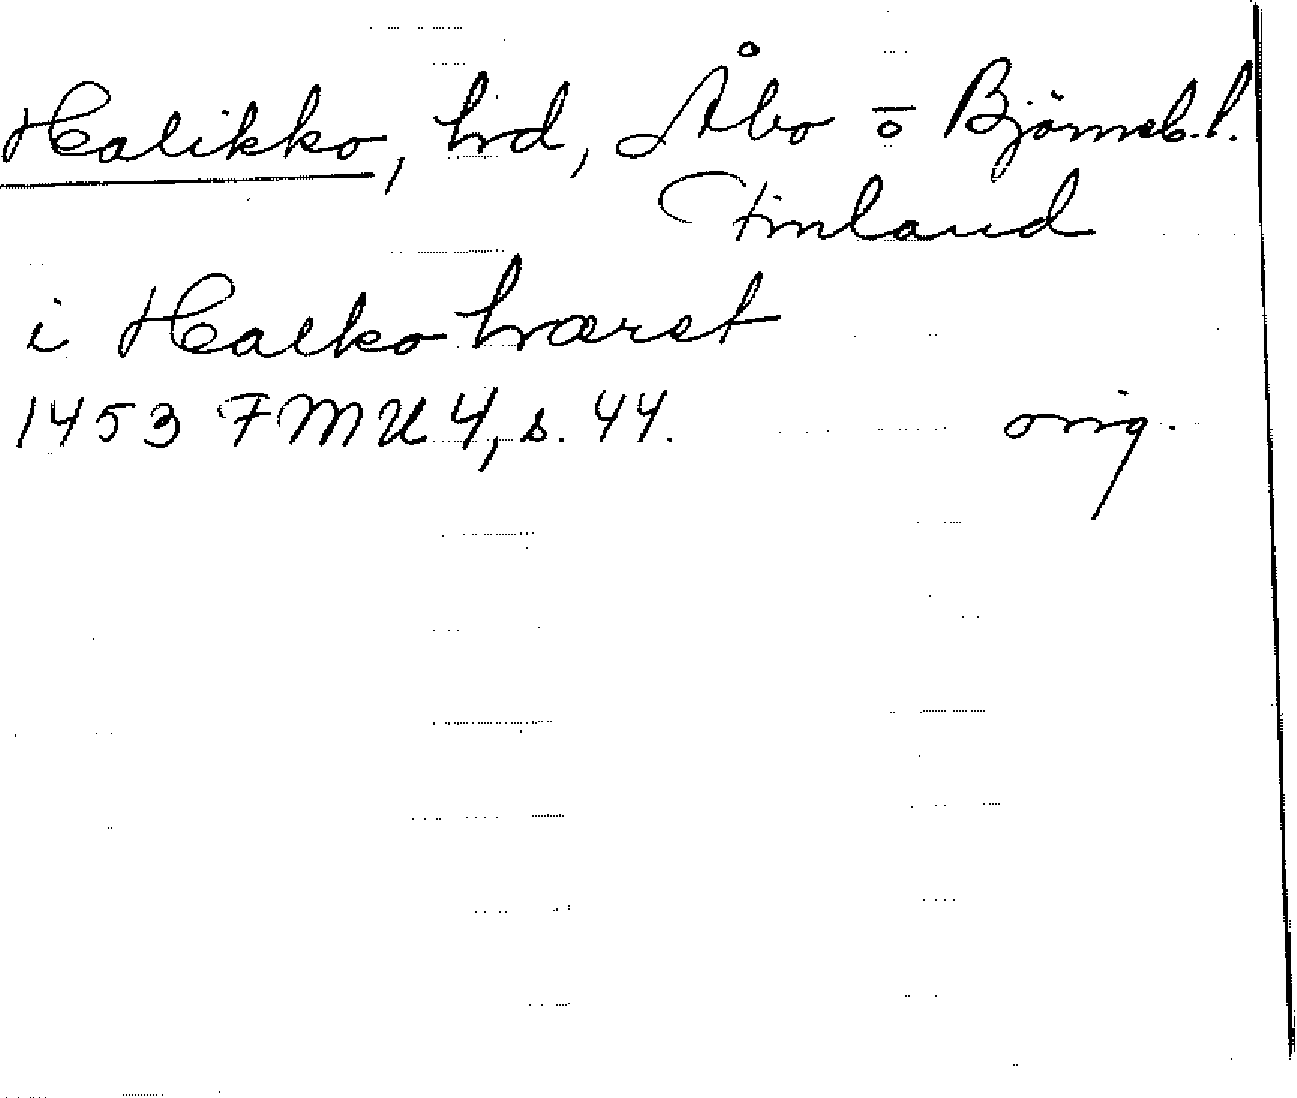 Halikko, hd, Åbo o Björneb. l.
Finland
i Halko hæret
1453 FMU 4, s. 44. orig.